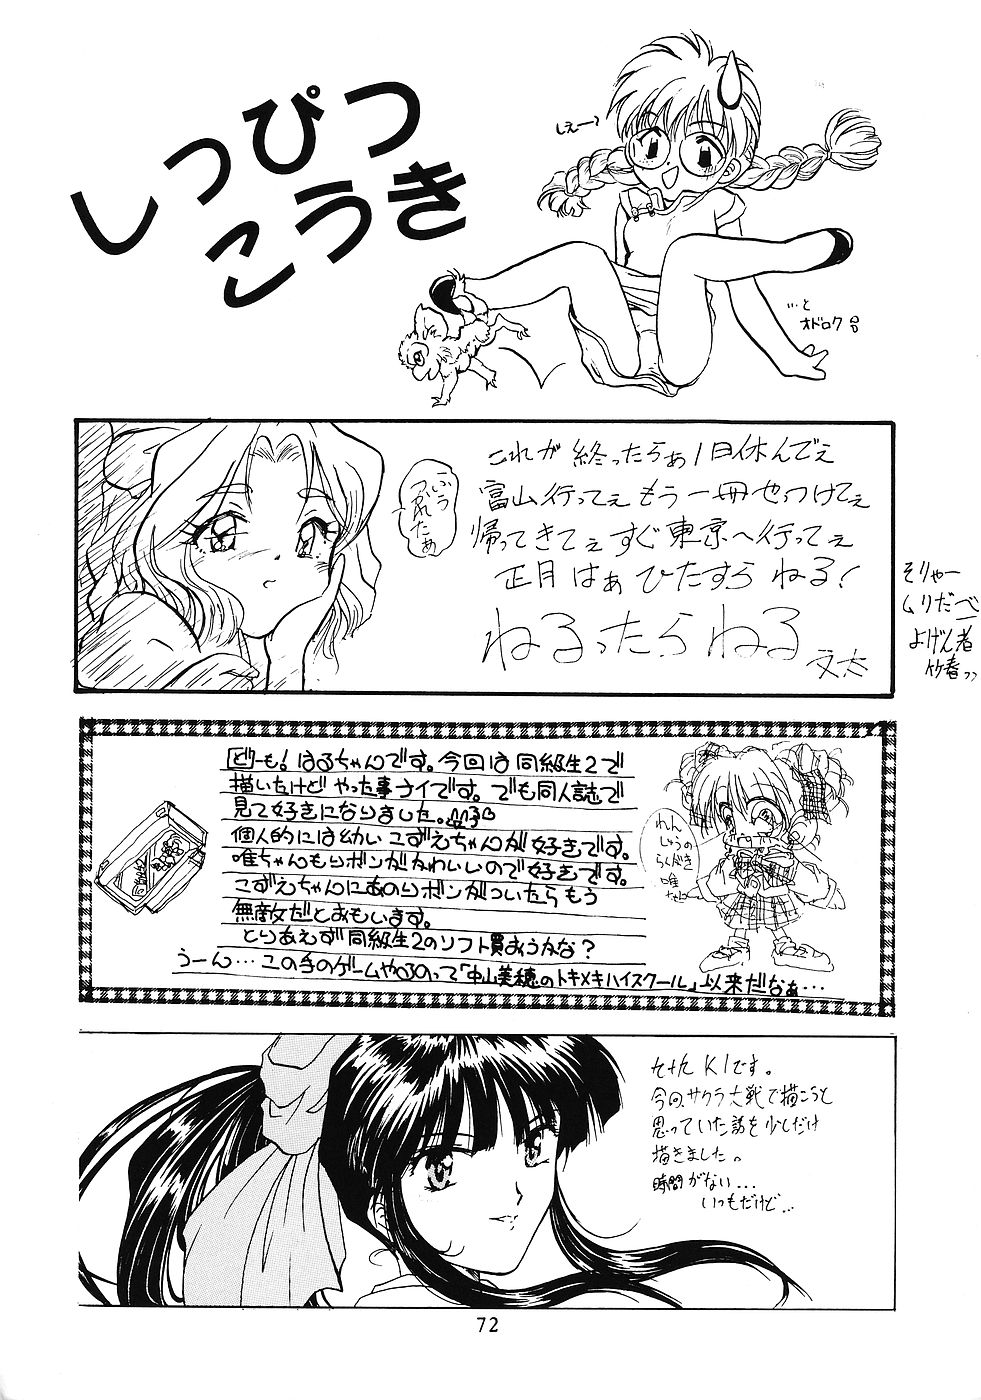 しっぴつ
こうき
しぇーっ
…と
オドロク
これが 終ったらぁ1日休んでぇ
富山行ってぇ もう一冊せっつけてぇ
帰ってきてぇ すぐ東京へ行ってぇ
正月はぁ ひたすら ねる!
ねるったら ねる
文太
こいう
つかれたぁ
そりゃー
ムリだべ
よげん者
竹春
どーも!はるちゃんです。今回は同級生2で
描いたけど やった事ナイです。でも同人誌で
見て好きになりました。
個人的には幼い こずえちゃんが好きです。
唯ちゃんもリボンがかわいいので好きです。
こずえちゃんにあのリボンがついたら もう
無敵だとおもいます。
とりあえず同級生2のソフト買おうかな?
うーん…この手のゲームやるのって「中山美穂のトキメキハイスクール」以来だなぁ…
れん
しゅうの
らくがき
唯
K1です。
今回、サクラ大戦で描こうと
思っていた話を少しだけ
描きました。
時間がない…
いつもだけど…
72